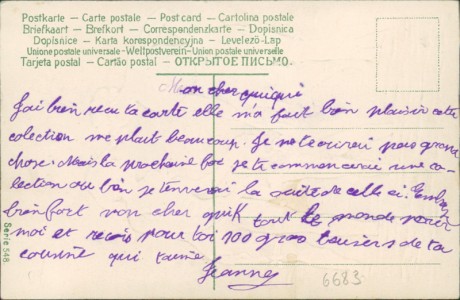 Postkarte - Carte postale - Post card - Cartolina postale
Briefkaart - Brefkort - Correspondenzkarte - Dopisnica
Dopisnice - Karta korespondencyjna - Levelező-Lap
Union postale universelle - Weltpostverein - Union postale universelle
Tarjeta postal - Cartão postal - ОТКРЫТОЕ ПИСЬМО.
Mon cher quiqui
J'ai bien recu ta carte elle m'a fait bien plaisir cette
colection me plait beaucoup. Je ne t'ecrirai pas grand
chose. Mais la prochaine foi je te commencerai une co-
lection ou bien je t'enverai la suite de celle ci. Emb
bien fort mon cher quiki tout le monde pour
moi et recois pour toi 100 baisers de ta
cousine qui t'aime
Jeanne
Serie 548
6683